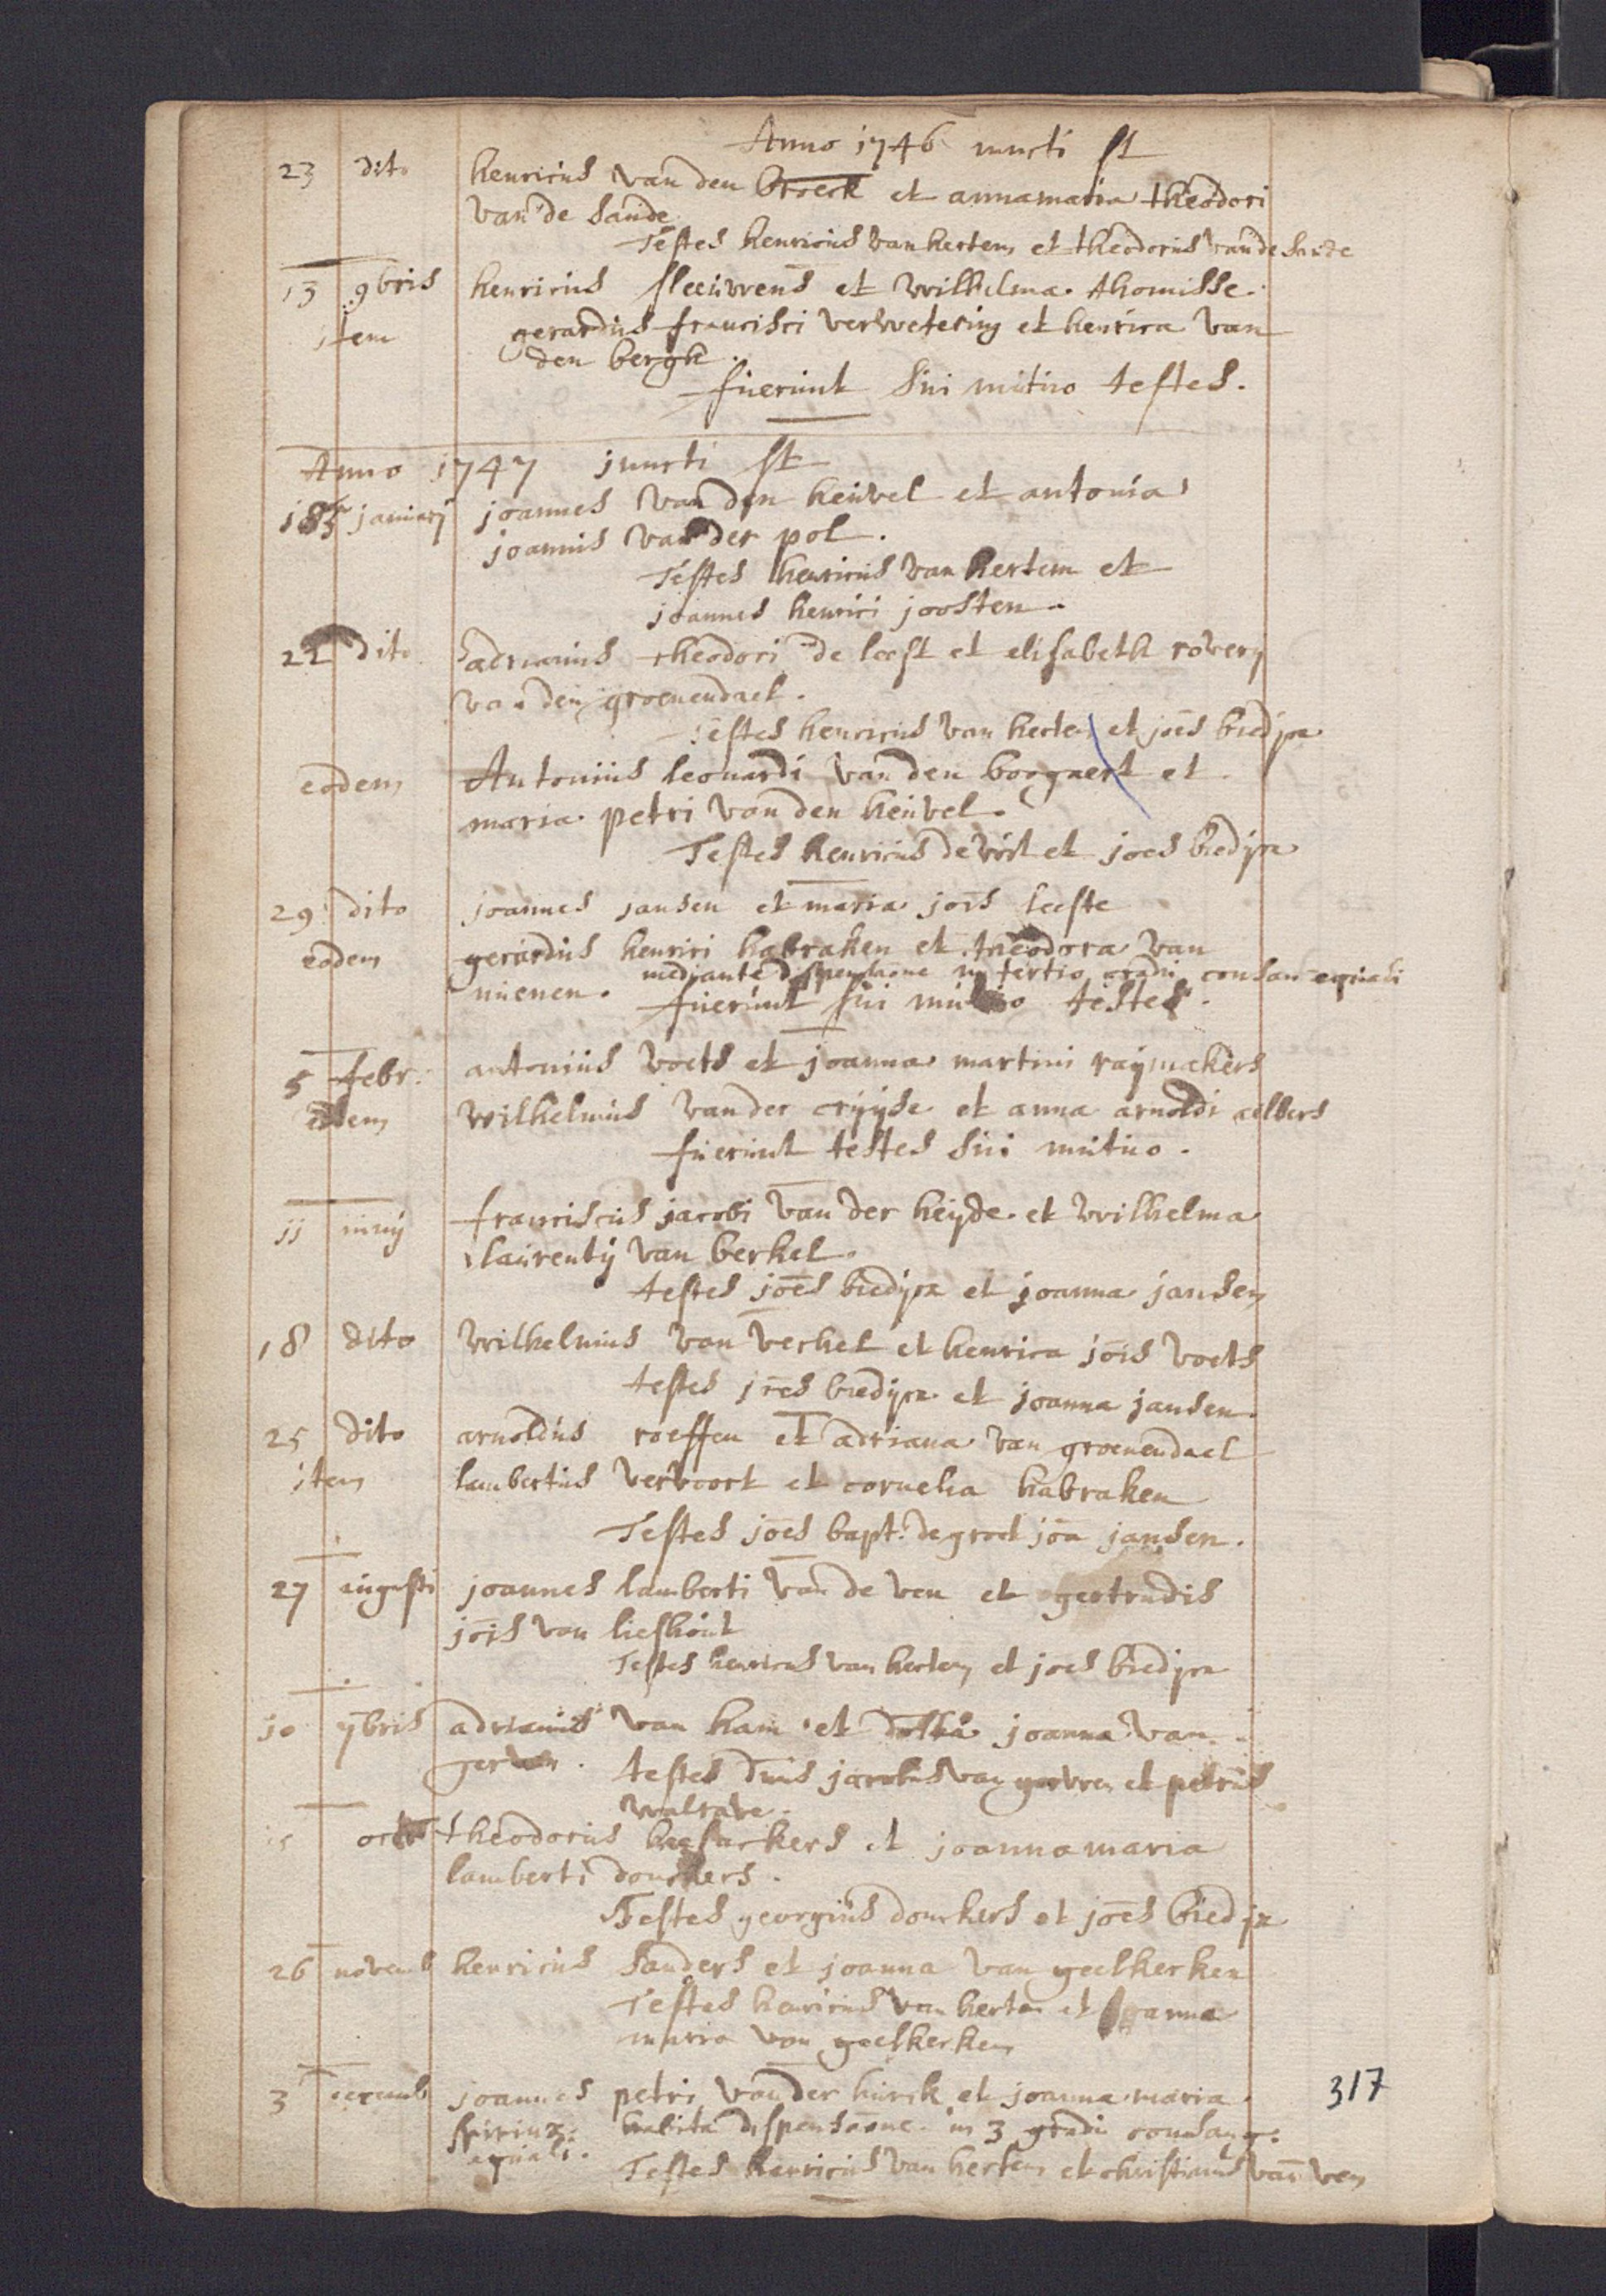 Anno 1746 juncti st
23 dito henricus van den broeck et annamaria theodori
van de sande
Testes henricus van hertem et theodorus van de sande
13 9bris henricus sleeuwens et wilhelma thomisse
item gerardus francisci verwetering et henrica van
den bergh.
fuerunt sui mutuo testes.
Anno 1747 juncti st
januarij joannes van den heuvel et antonia
joannis van der pol.
Testes henricus van hertem et
joannes henrici joosten.
22 dito adrianus theodori de leest et elisabeth roverij
van den groenendael.
Testes henricus van hertem et joēs biedijn
eodem Antonius leonardi van den boogaert et
maria petri van den heuvel.
Testes henricus de vist et joes biedijn
29 dito joannes jansen et maria jois leeste
eodem gerardus henrici habraken et theodora van
mediante dispensaōne in tertio gradu consan equali
nuenen. fuerunt sui mutuo testes.
5 febr. antonius voets et joanna martini raijmakers
eodem wilhelmus van der crijse et anna arnoldi aelbers
fuerunt testes sui mutuo.
11 franciscus jacobi van der heijde et wilhelma
laurentij van berkel.
testes joēs biedijn et joanna jansen
18 dito wilhelmus van berkel et henrica jōis voets
testes joēs biedijn et joanna jansen.
25 dito arnoldus roeffen et adriana van groenendael
item lambertus vervoort et cornelia habraken
Testes joēs bapt. de groot jōa jansen.
27 augusti joannes lamberti van de ven et gertrudis
jōis van lieshout
Testes henricus van hertem et joes biedijn
10 7bris adrianus van ham et joanna van
gerwen. testes dnus jacobus van gerwen et petrus
walrave.
15 octb theodorus beefackers et joannamaria
lamberti donckers.
Testes georgius donckers et joēs biedijn
26 novemb henricus sanders et joanna van geelkerken
Testes henricus van hertem et joanna
maria van geelkerken
3 decemb joannes petri van der hurck et joanna maria
habita dispensaōne in 3 gradu consang.
equali.
Testes henricus van hertem et christianus van ven
317